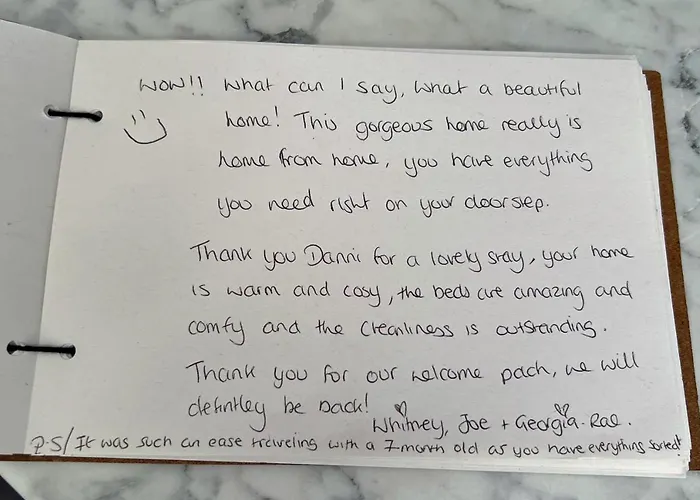 WOW!! What can I say, what a beautiful
home! This gorgeous home really is
home from home, you have everything
you need right on your doorstep.
Thank you Danni for a lovely stay, your home
is warm and cosy, the beds are amazing and
comfy and the cleanliness is outstanding.
Thank you for our welcome pach, we will
definitley be back!
Whitney, Joe + Georgia-Rae.
P.S/ It was such an ease traveling with a 7 month old as you have everything sorted!